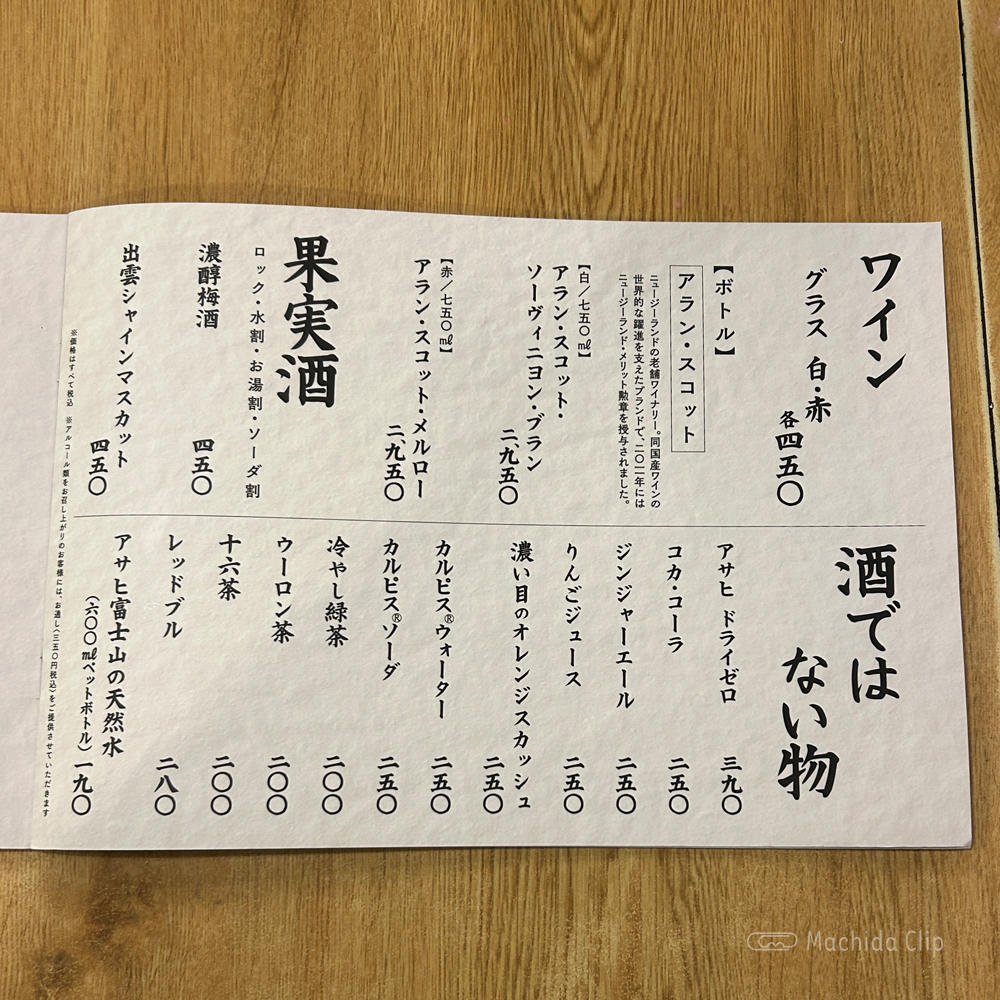 ワイン
グラス 白・赤
各四五〇
【ボトル】
アラン・スコット
ニュージーランドの老舗ワイナリー。同国産ワインの
世界的な躍進を支えたブランドで、二〇一一年には
ニュージーランド・メリット勲章を授与されました。
【白／七五〇㎖】
アラン・スコット・
ソーヴィニヨン・ブラン
二、九五〇
【赤／七五〇㎖】
アラン・スコット・メルロー
二、九五〇
果実酒
ロック・水割・お湯割・ソーダ割
濃醇梅酒
四五〇
出雲シャインマスカット
四五〇
酒では
ない物
アサヒ ドライゼロ 三九〇
コカ・コーラ 二五〇
ジンジャーエール 二五〇
りんごジュース 二五〇
濃い目のオレンジスカッシュ
二五〇
カルピス®ウォーター 二五〇
カルピス®ソーダ 二五〇
冷やし緑茶 二〇〇
ウーロン茶 二〇〇
十六茶 二〇〇
レッドブル 二八〇
アサヒ富士山の天然水
（六〇〇㎖ペットボトル） 一九〇
※価格はすべて税込 ※アルコール類をお召し上がりのお客様には、お通し（三五〇円税込）をご提供させていただきます
Machida Clip